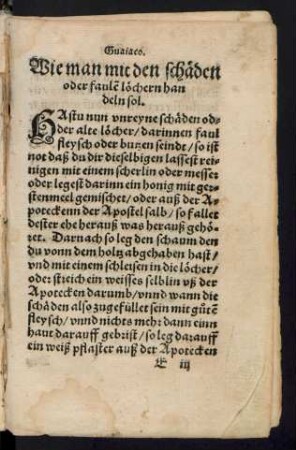 Guaiaco.
Wie man mit den schäden
oder faulē löchern han
deln sol.
HAstu nun vnreyne schäden od⸗
der alte löcher/ darinnen faul
fleysch oder butzen seindt/ so ist
not daß du dir dieselbigen lassest rei⸗
nigen mit einem scherlin oder messer
oder legest darinn ein honig mit ger⸗
stenmeel gemischet/ oder auß der A⸗
poteckenn der Apostel salb/ so fallet
dester ehe herauß was herauß gehö⸗
ret. Darnach so leg den schaum den
du vonn dem holtz abgehaben hast/
vnd mit einem schleisen in die löcher/
oder streich ein weisses selblin vß der
Apotecken darumb/ vnnd wann die
schäden also zugefüllet sein mit gutē
fleysch/ vnnd nichts mehr dann einn
haut darauff gebrist/ so leg darauff
ein weiß pflaster auß der Apotecken
E iij